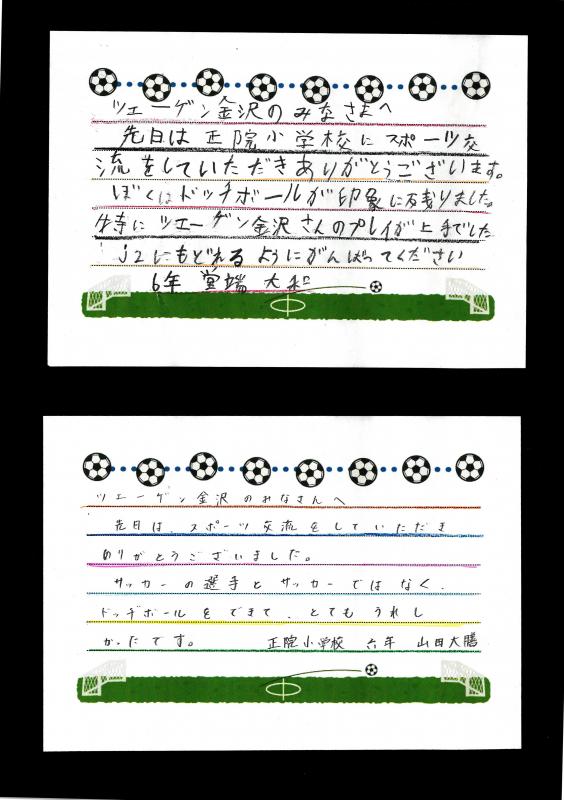 ツエーゲン金沢のみなさまへ
先日は正院小学校にスポーツ交
流をしていただきありがとうございます。
ぼくはドッチボールが印象に残りました。
特にツエーゲン金沢さんのプレイが上手でした
J2にもどれるようにがんばってください
6年 堂端 大和
ツエーゲン金沢のみなさんへ
先日は、スポーツ交流をしていただき
ありがとうございました。
サッカーの選手とサッカーではなく、
ドッヂボールをできて、とてもうれし
かったです。 正院小学校 六年 山田大勝